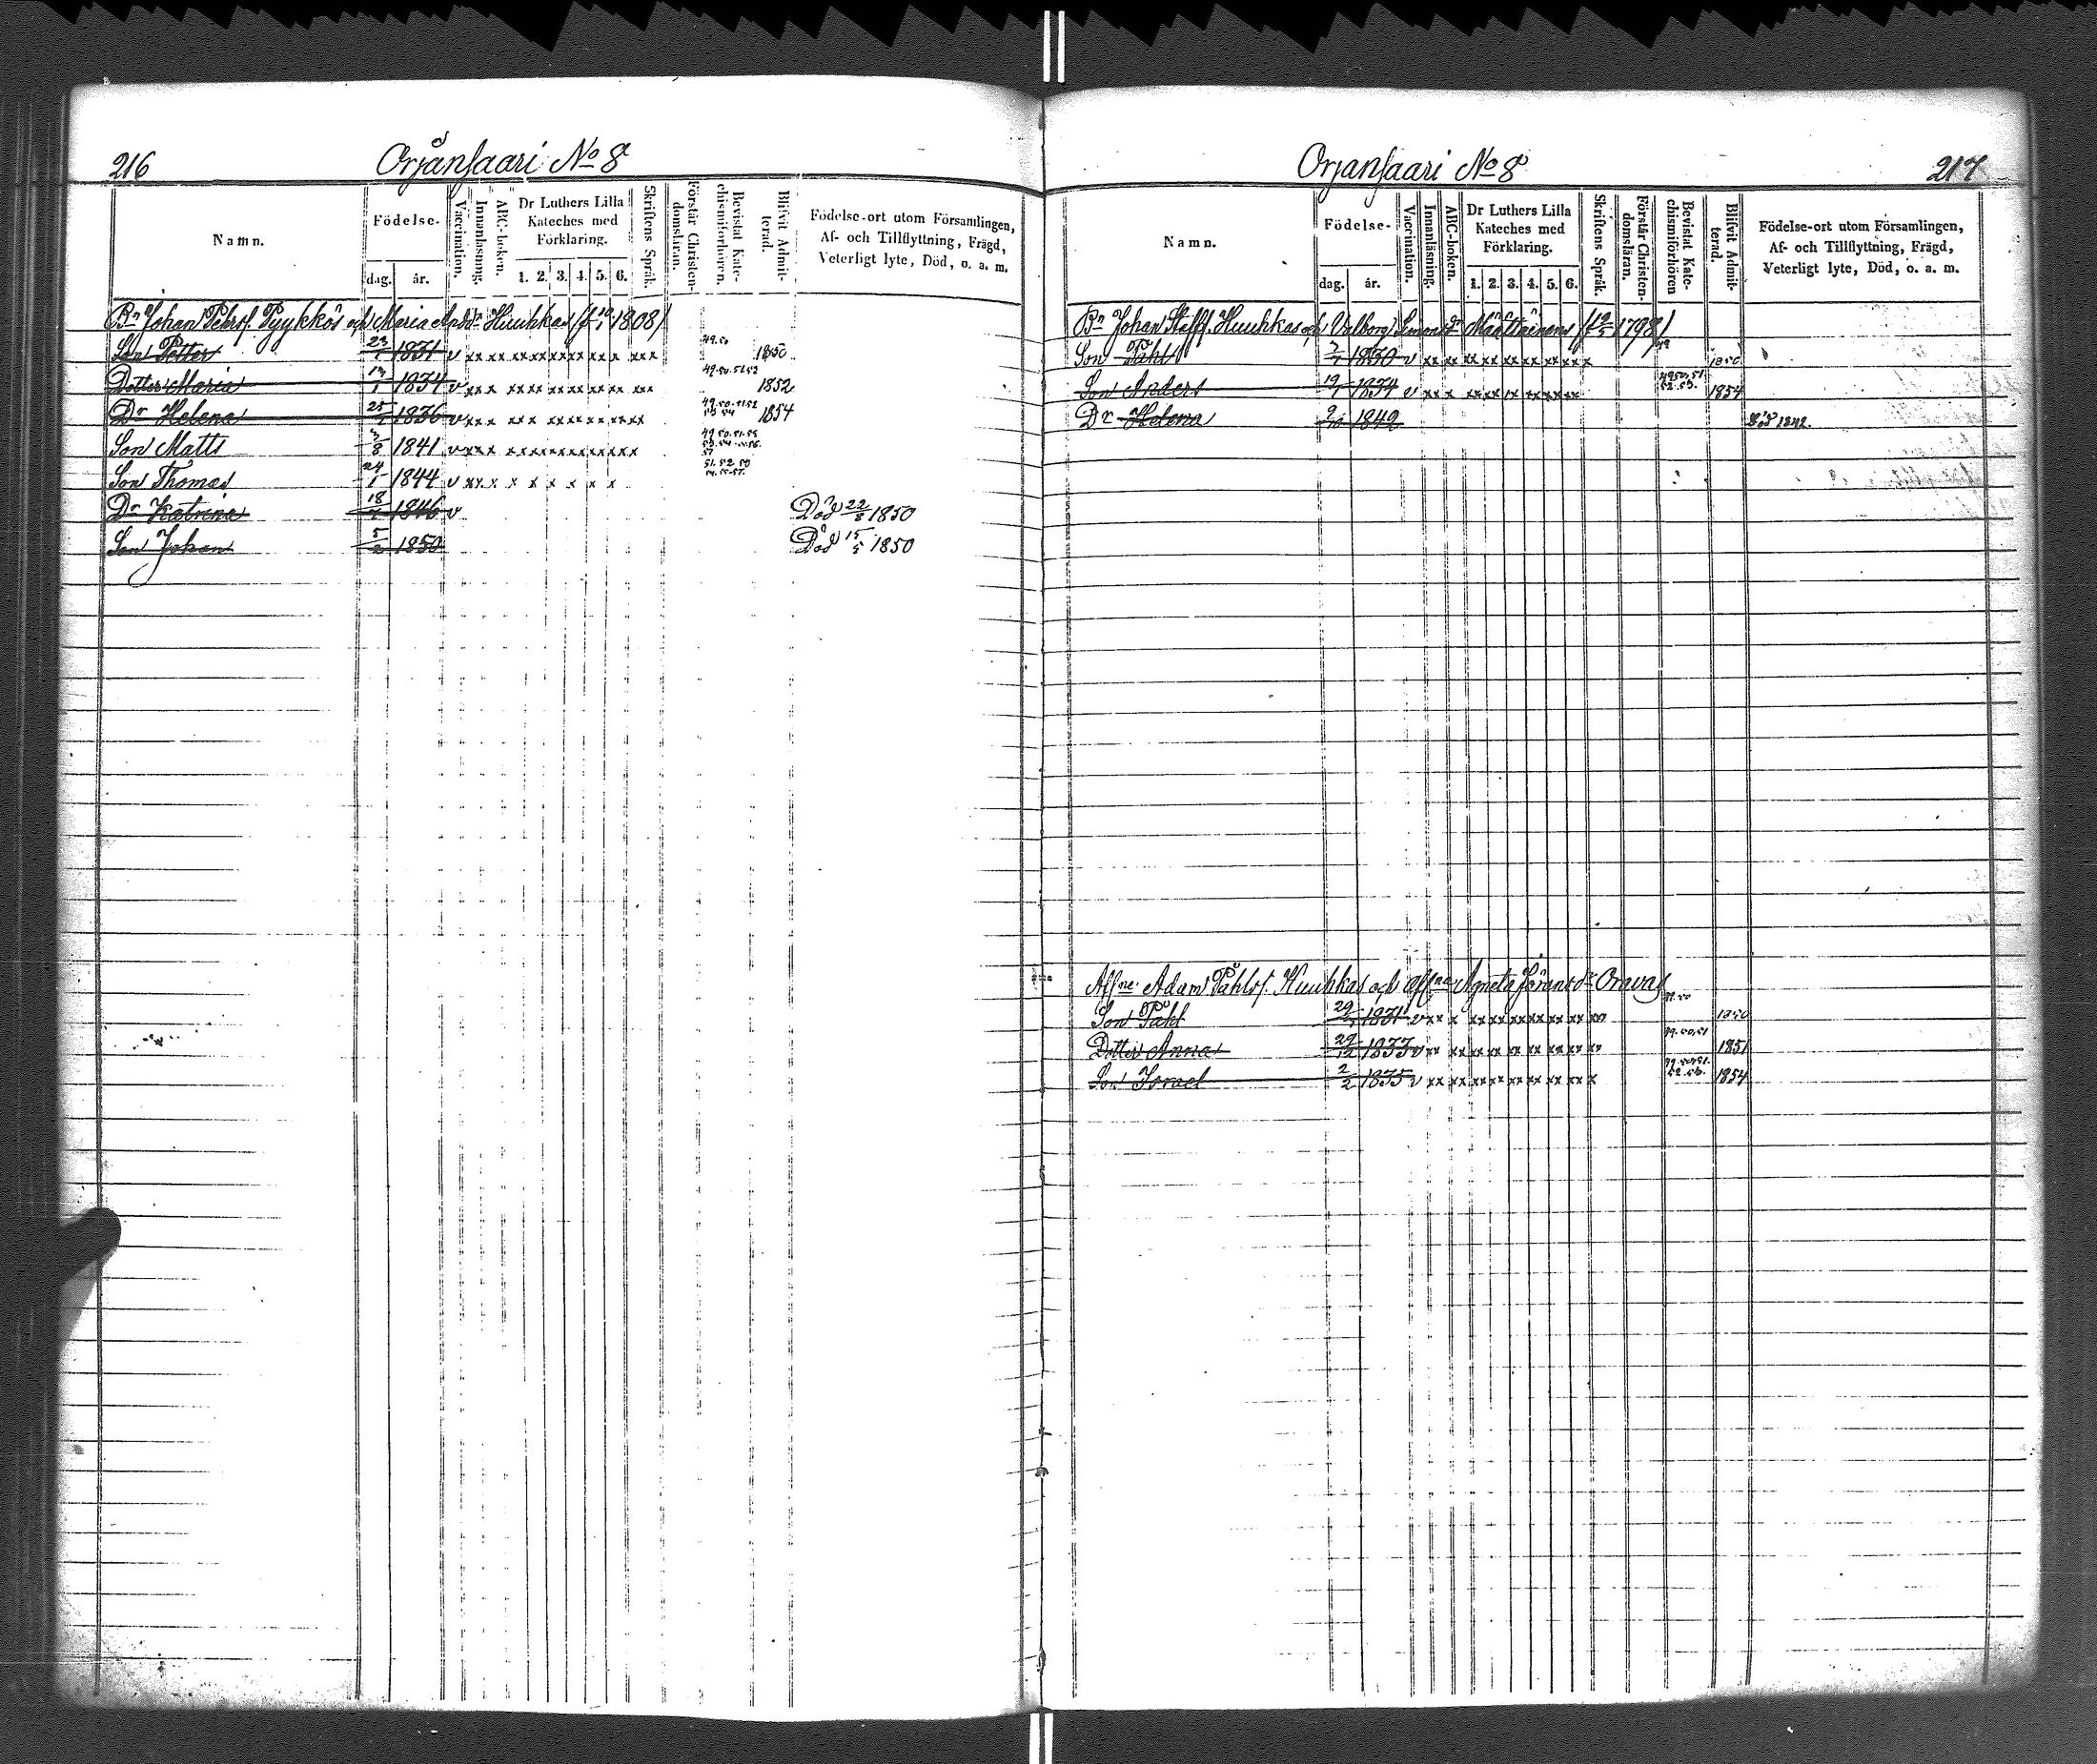 216
Orjansaari No 8
Namn.
Födelse-
dag.
år.
Vaccination.
Innanläsning.
ABC-boken.
Dr Luthers Lilla
Kateches med
Förklaring.
1. 2. 3. 4. 5. 6.
Skriftens Språk.
Förstår Christen-
domsläran.
Bevistat Kate-
chismiförhören.
Blifvit Admit-
terad.
Födelse-ort utom Församlingen,
Af- och Tillflyttning, Frägd,
Veterligt lyte, Död, o. a. m.
Bn Johan Petrsf. Pyykkös och Maria Andsdr Huuhkas (f. 1808)
Son Petter 23/ 1831 v xx xx xxxxxxxxxxx xxx 49.50 1850
Dotter Maria 1834 v xxx xxxx xxxxxxxx xxx 49.50.51.52 1852
Dr Helena 25/ 1836 v xxx xxx xxxxxxxxx 1854
Son Matts 3/8 1841 v xxx xxxxxxxxxxxx
Son Thomas 24/1 1844 v xx x x x x x x x 51.52.53
Dr Katrina 18/ 1846 v Död 22/ 1850
Son Johan 5/2 1850 Död 15/5 1850
Orjansaari No 8
217
Namn.
Födelse-
dag.
år.
Vaccination.
Innanläsning.
ABC-boken.
Dr Luthers Lilla
Kateches med
Förklaring.
1. 2. 3. 4. 5. 6.
Skriftens Språk.
Förstår Christen-
domsläran.
Bevistat Kate-
chismiförhören
Blifvit Admit-
terad.
Födelse-ort utom Församlingen,
Af- och Tillflyttning, Frägd,
Veterligt lyte, Död, o. a. m.
Bn Johan Staffs. Huuhkas och Valborg Simonsdr Määttäinen (f. 1798)
Son Påhl 1830 v xx xx xx xx xx xx xx x 49 1850
Son Anders 19/ 1834 v xx x xxxx xx xxxxxx 49.50.51. 52.53. 1854
Dr Helena 1842 Död 1842.
Affne Adam Påhlsf. Huuhkas och Affna Agneta Göransdr Oravas
Son Påhl 29/ 1831 v xx x xxxxxxxxxxxx xx 49.50 1850
Dotter Anna 29/12 1833 v xx xx xx xx xx xx xx xx 49.50.51 1851
Son Israel 2/2 1835 v xx xx xxxx xx xx xx x 52.53. 1854